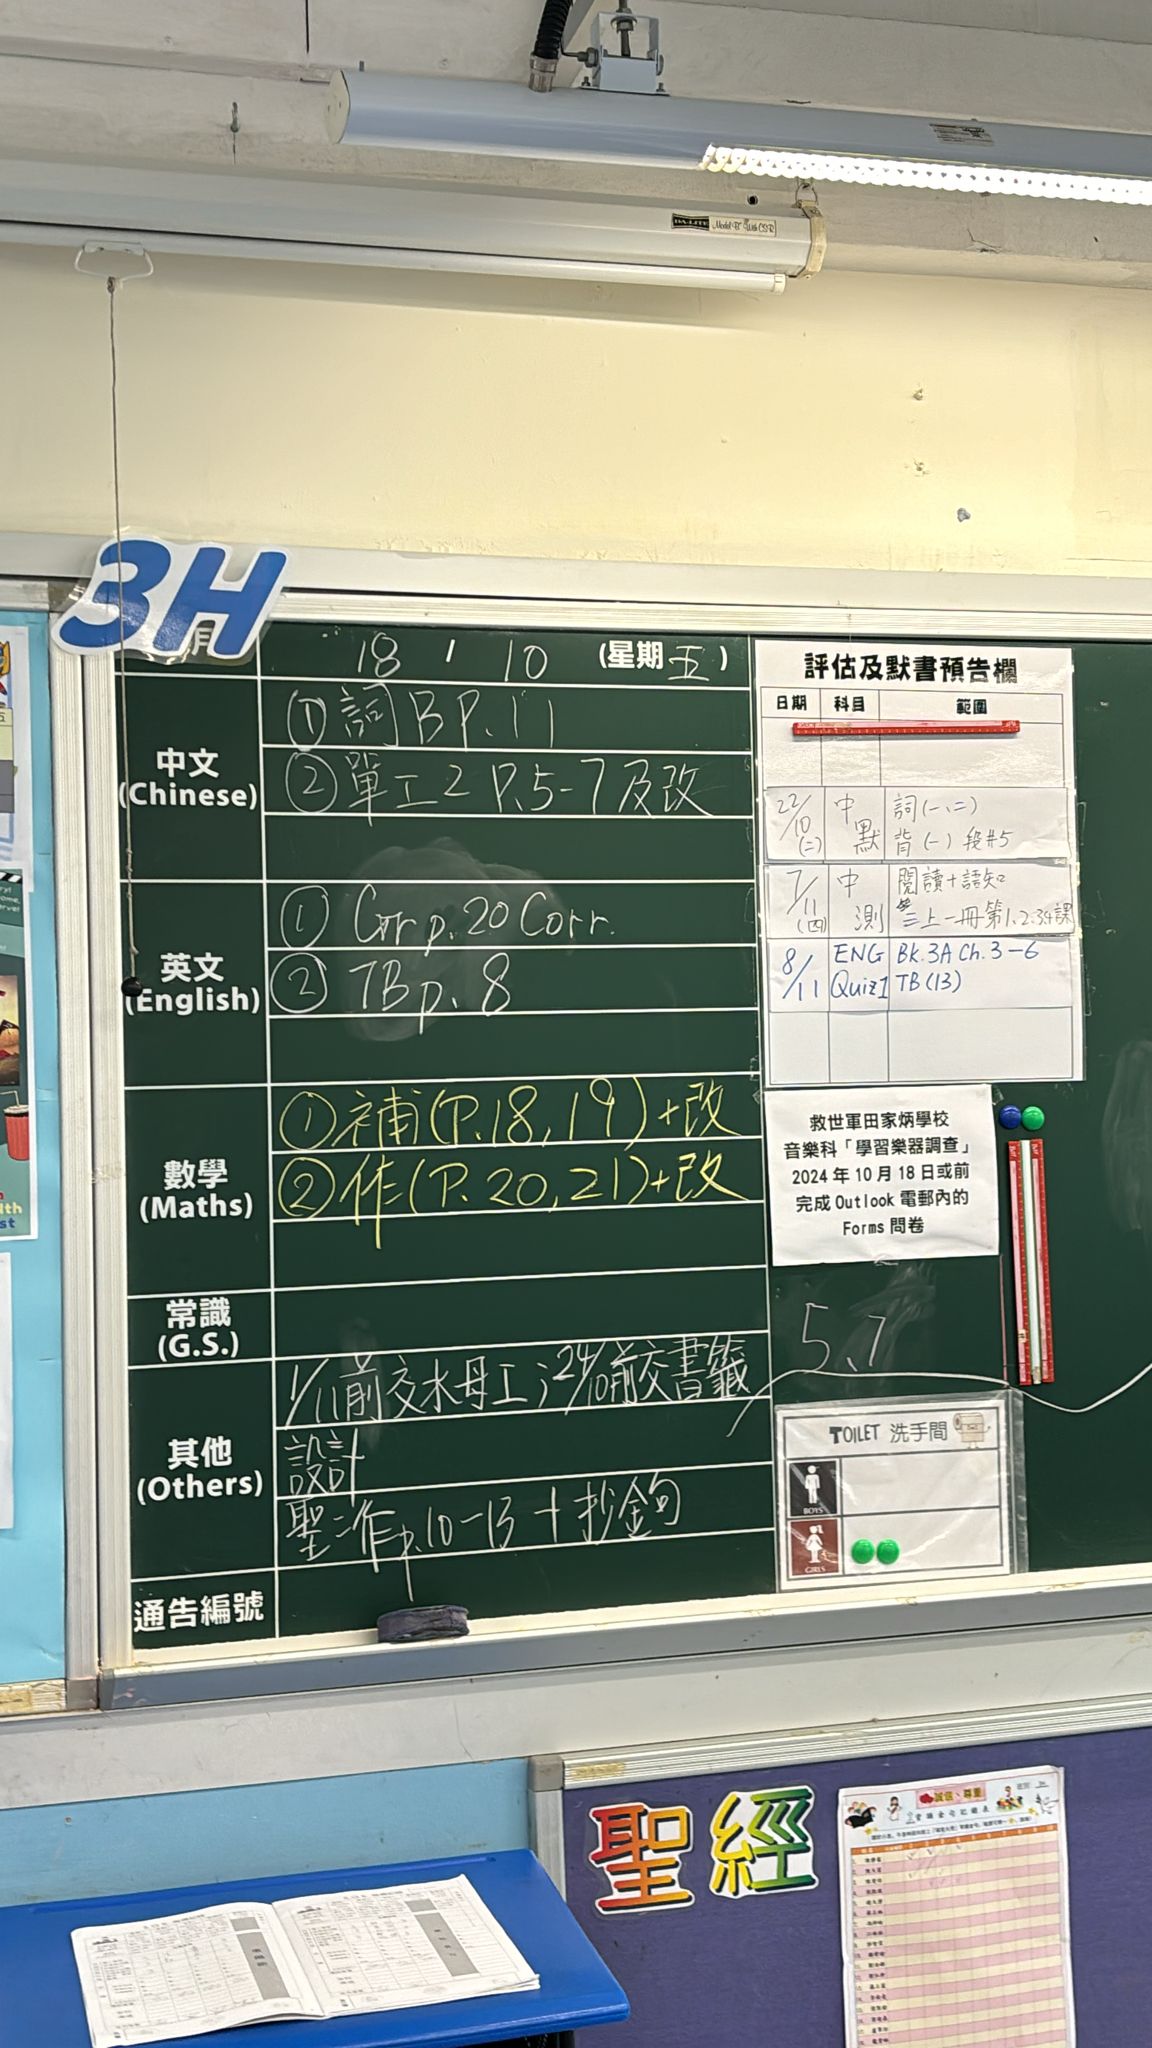 DA-LITE Model B With CSR
3H
月
18 / 10 (星期五)
中文
(Chinese)
① 詞B P.11
② 單工2 P.5-7及改
英文
(English)
① Grr p.20 Corr.
② TB p.8
數學
(Maths)
① 補(P.18,19)+改
② 作(P.20,21)+改
常識
(G.S.)
其他
(Others)
1/11前交水母工;24/10前交書籤
設計
聖:作p.10-13+抄金句
通告編號
評估及默書預告欄
日期 科目 範圍
22/10(二) 中默 詞(一、二)
背(一)段#5
7/11(四) 中測 閱讀+語知
三上一冊第1.2.3.4課
8/11 ENG Quiz1 Bk.3A Ch.3-6
TB(13)
救世軍田家炳學校
音樂科「學習樂器調查」
2024年10月18日或前
完成Outlook電郵內的
Forms問卷
5、7
TOILET 洗手間
BOYS
GIRLS
聖經
誠信、尊重